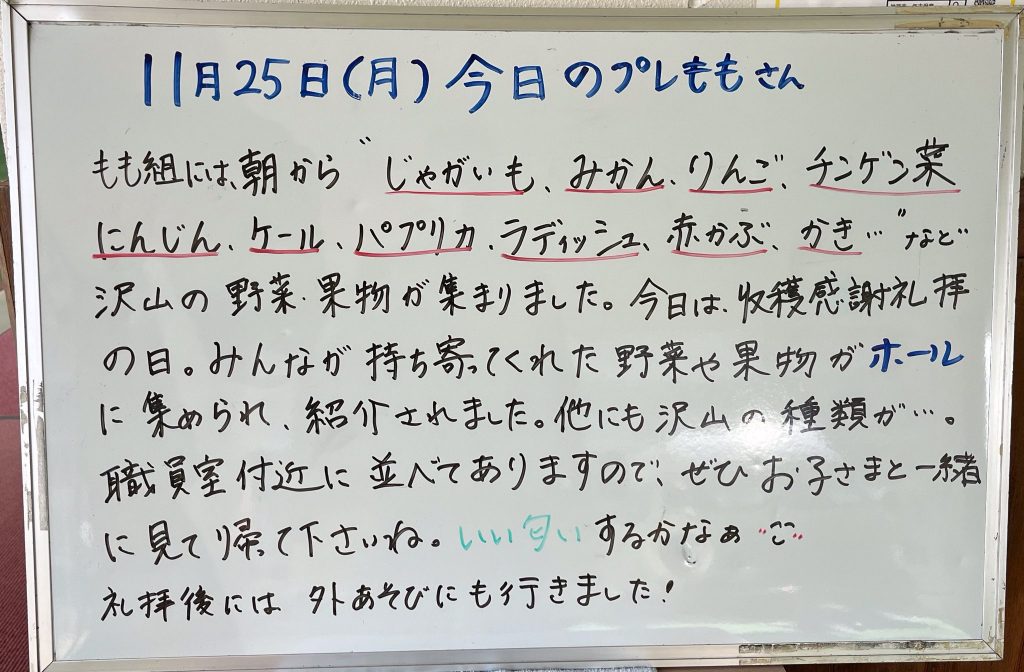 11月25日(月)今日のプレももさん
もも組には、朝から"じゃがいも、みかん、りんご、チンゲン菜
にんじん、ケール、パプリカ、ラディッシュ、赤かぶ、かき…"など
沢山の野菜・果物が集まりました。今日は、収穫感謝礼拝
の日。みんなが持ち寄ってくれた野菜や果物がホール
に集められ、紹介されました。他にも沢山の種類が…。
職員室付近に並べてありますので、ぜひお子さまと一緒
に見て帰って下さいね。いい匂いするかなぁ
礼拝後には外あそびにも行きました!